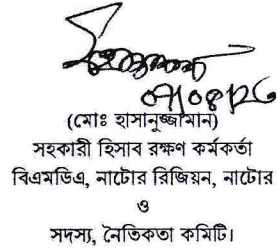 ০৭/০৪/২৬
(মোঃ হাসানুজ্জামান)
সহকারী হিসাব রক্ষণ কর্মকর্তা
বিএমডিএ, নাটোর রিজিয়ন, নাটোর
ও
সদস্য, নৈতিকতা কমিটি।